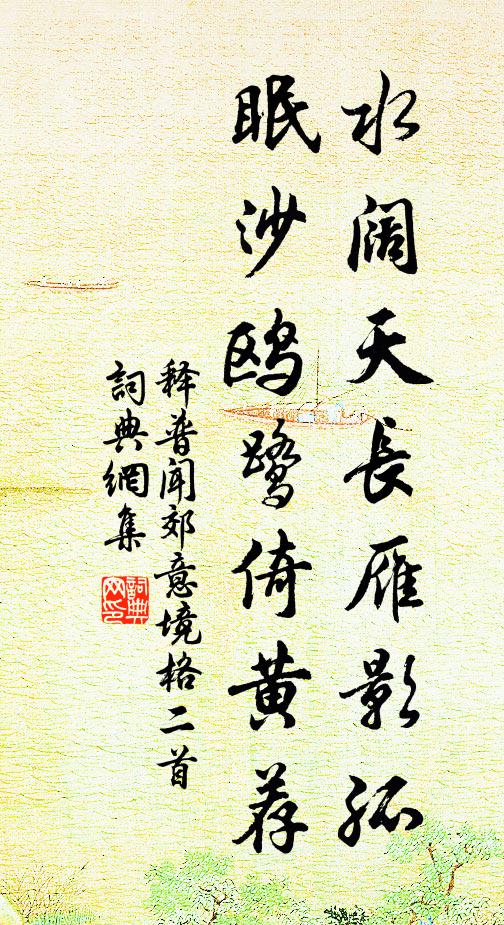 水阔天長雁影孤
眠沙鸥鹭倚黄荐
释普闻郊意境格二首
詞典網集
詞典
网印